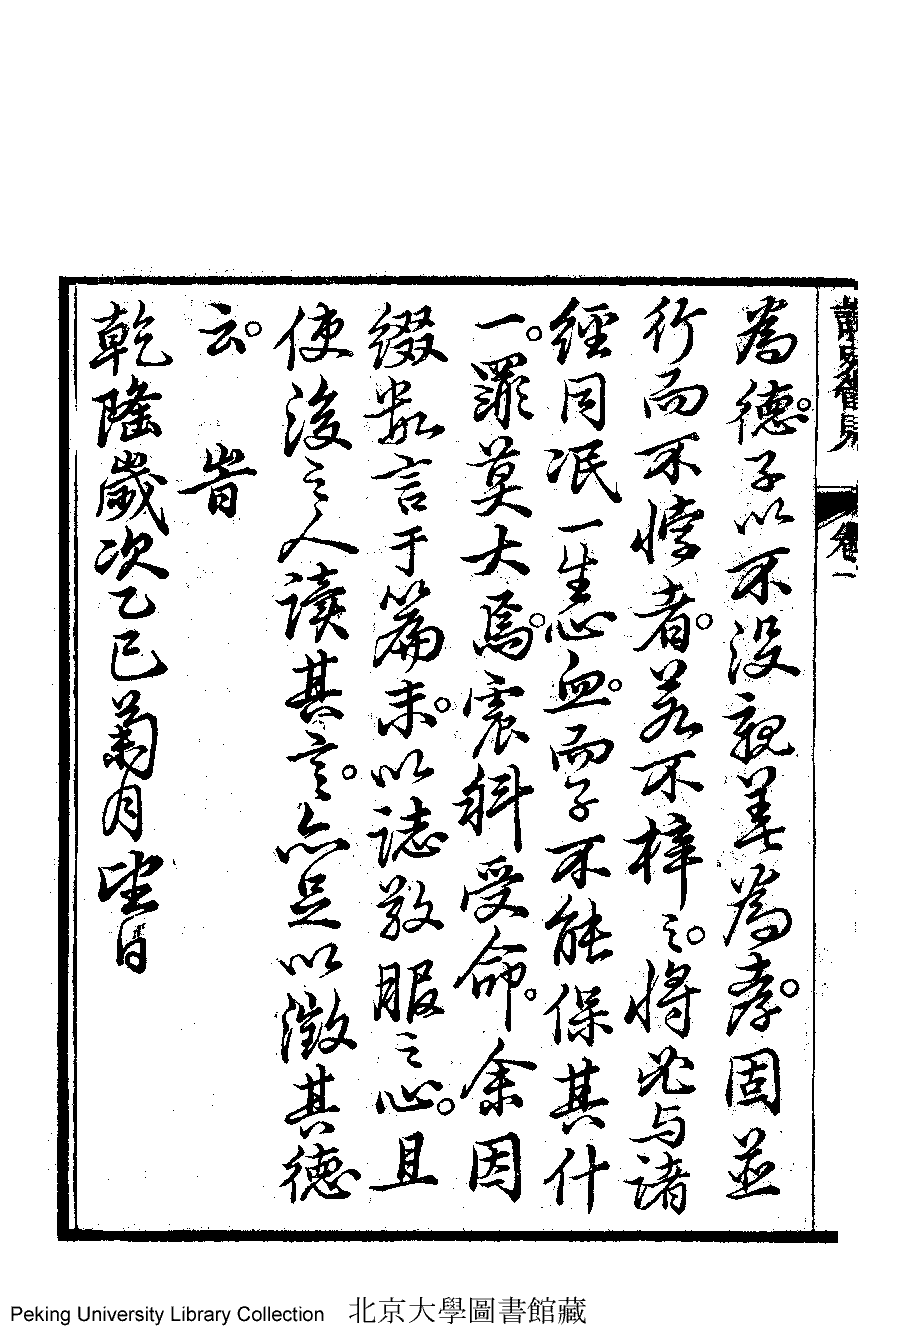 為德。子以不沒親美為孝。固並
行而不悖者。若不梓之。將必与諸
經同泯一生心血。而子不能保其什
一。罪莫大焉。震科受命。余因
綴数言于篇末。以誌敬服之心。且
使後之人讀其言。亦足以徵其德
云。 旹
乾隆歲次乙巳菊月望日
卷一
Peking University Library Collection 北京大學圖書館藏